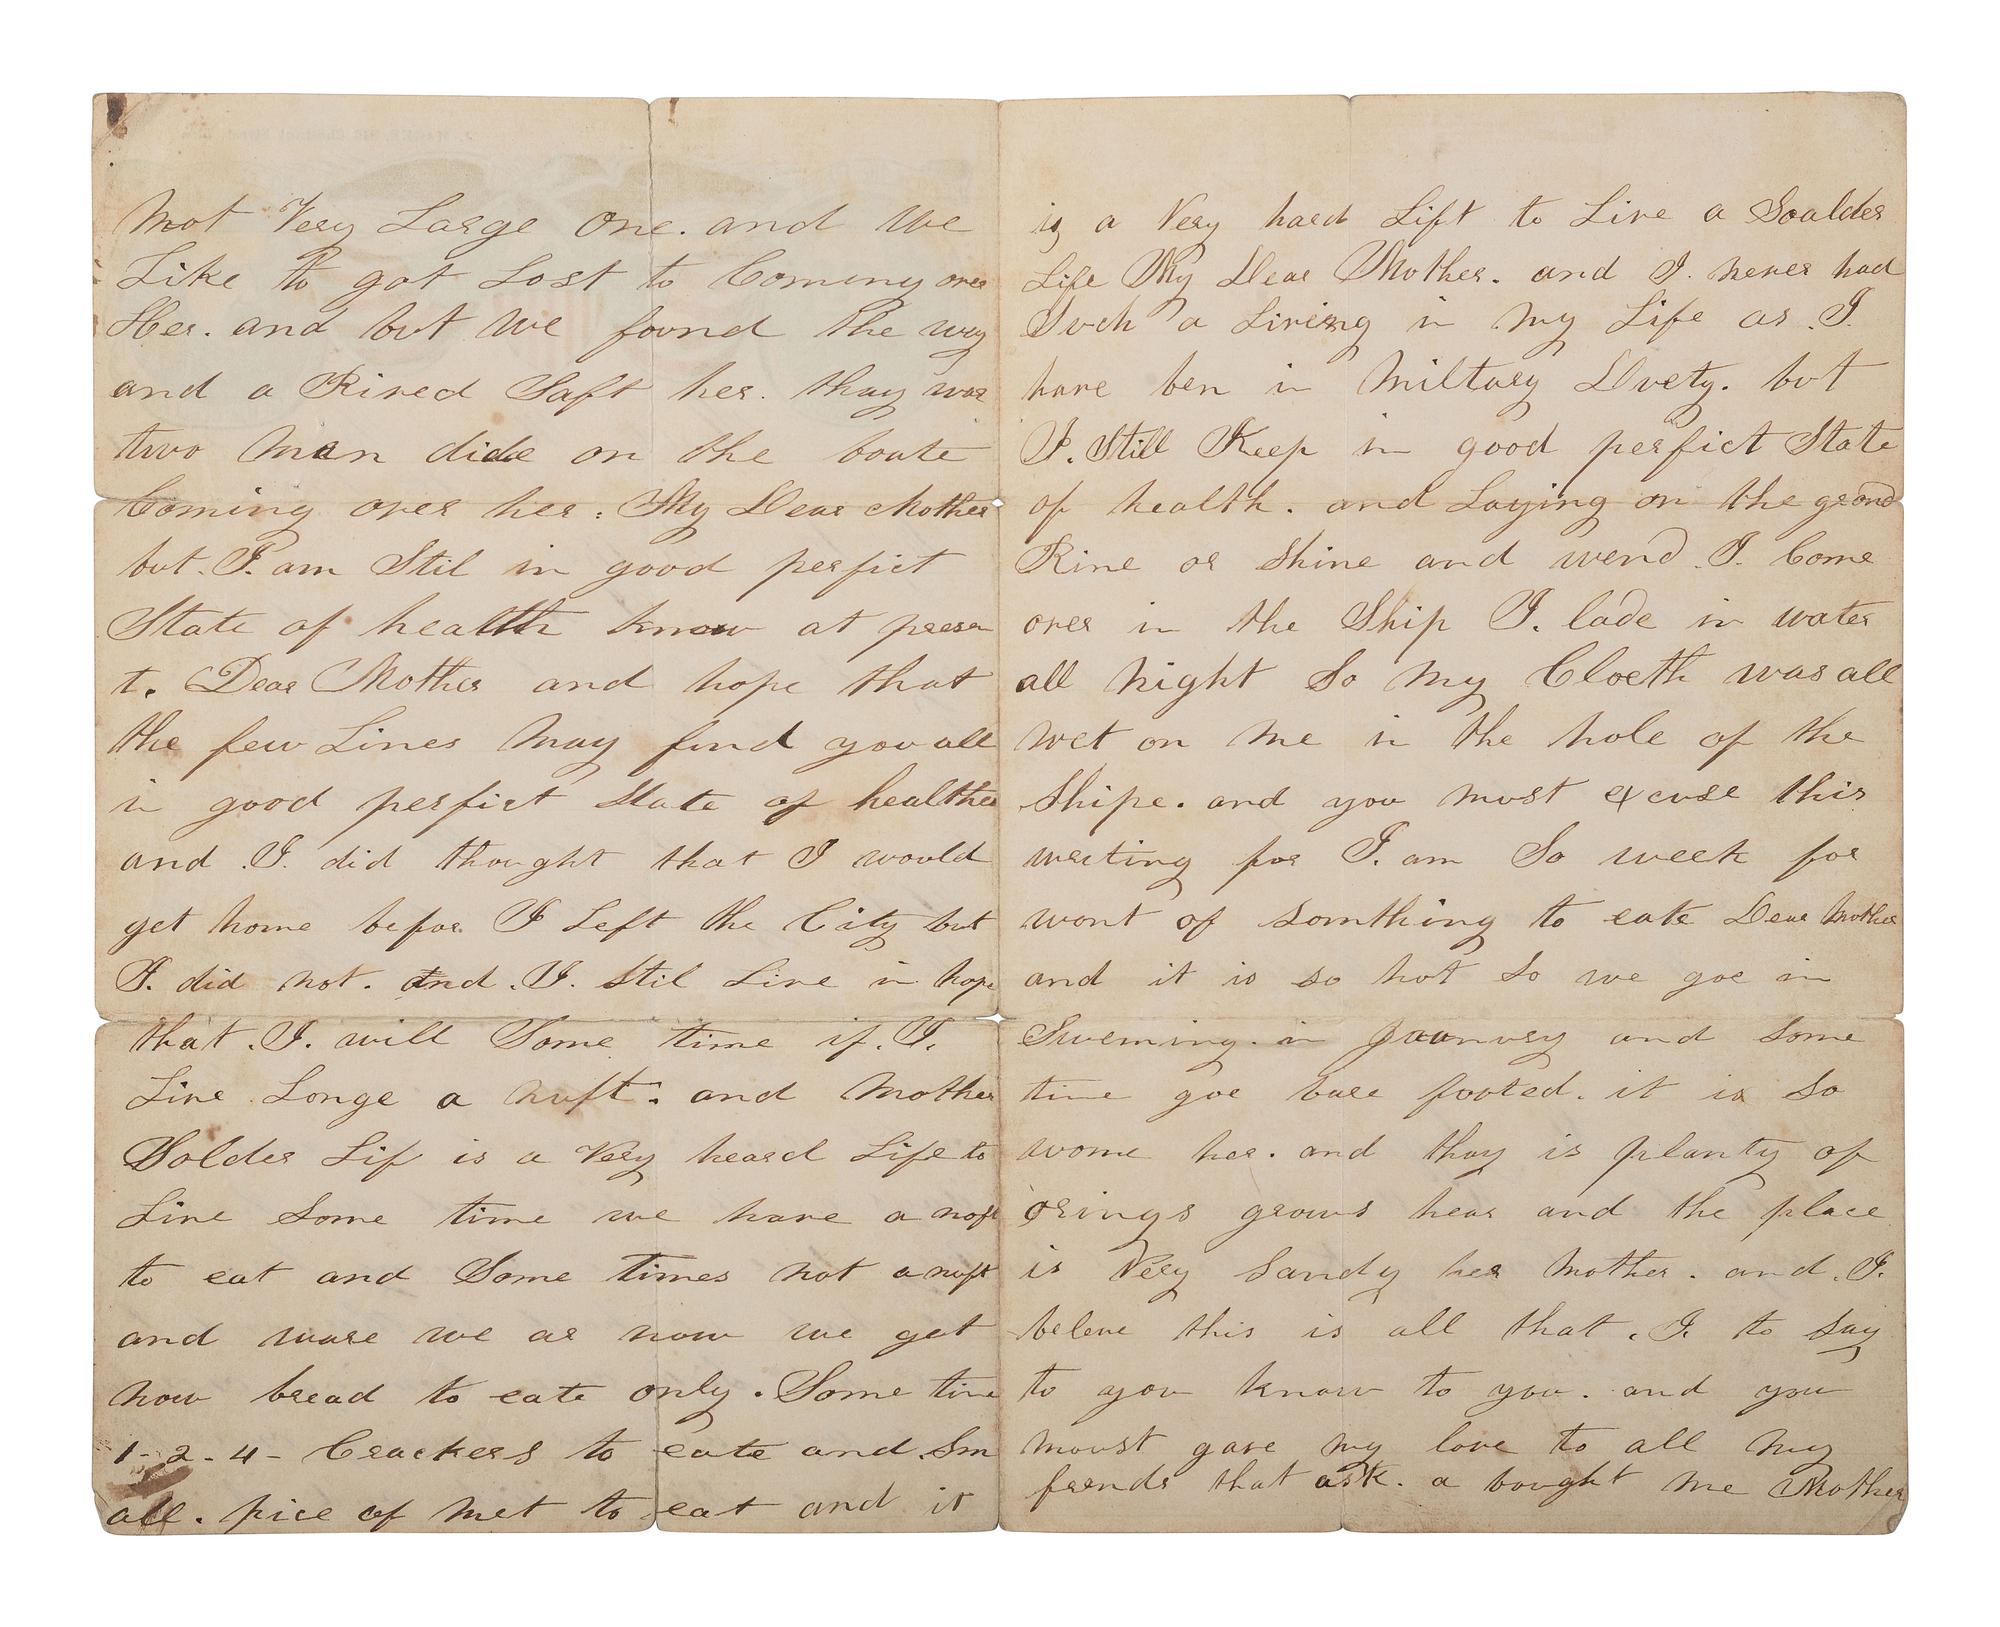 not Very Large One. and We
Like to got Lost to Coming over
Her. and but We found the way
and a Rived Saft her. thay was
two Men dide on the boate
Coming over her. My Dear Mother
but. I. am Stil in good perfict
State of health know at presen
t. Dear Mother and hope that
the few Lines May find you all
in good perfict State of healthe
and I. did thought that I would
get home befor I Left the City but
I. did not. and. I. Stil Live in hope
that. I. will Some time if. I.
Live Longe a nuft. and Mother
Solder Lif is a Very heard Life to
Live Some time we have a nuft
to eat and Some times not a nuft
and ware we ar now we get
now bread to eate only. Some time
1-2-4- Crackers to eate and Sm
all. pice of met to eat and it
is a Very hard Lift to Live a Soalder
Life My Dear Mother. and I. never had
Such a Liveing in my Life as. I.
have ben in Miltary Duety. but
I. Still Keep in good perfict State
of health. and Laying on the ground
Rine or Shine and wend. I. Come
over in the Ship I. lade in water
all night So my Cloeth was all
wet on me in the hole of the
Shipe. and you must excuse this
writing for I. am So week for
wont of Somthing to eate Dear Mother
and it is so hot So we goe in
Sweming. in January and Some
time goe bare footed. it is So
wome her. and thay is planty of
orings grows hear and the place
is Very Sandy her Mother. and. I.
beleve this is all that. I. to Say
to you know to you. and you
moust gave my love to all my
frends that ask. a bought me Mother